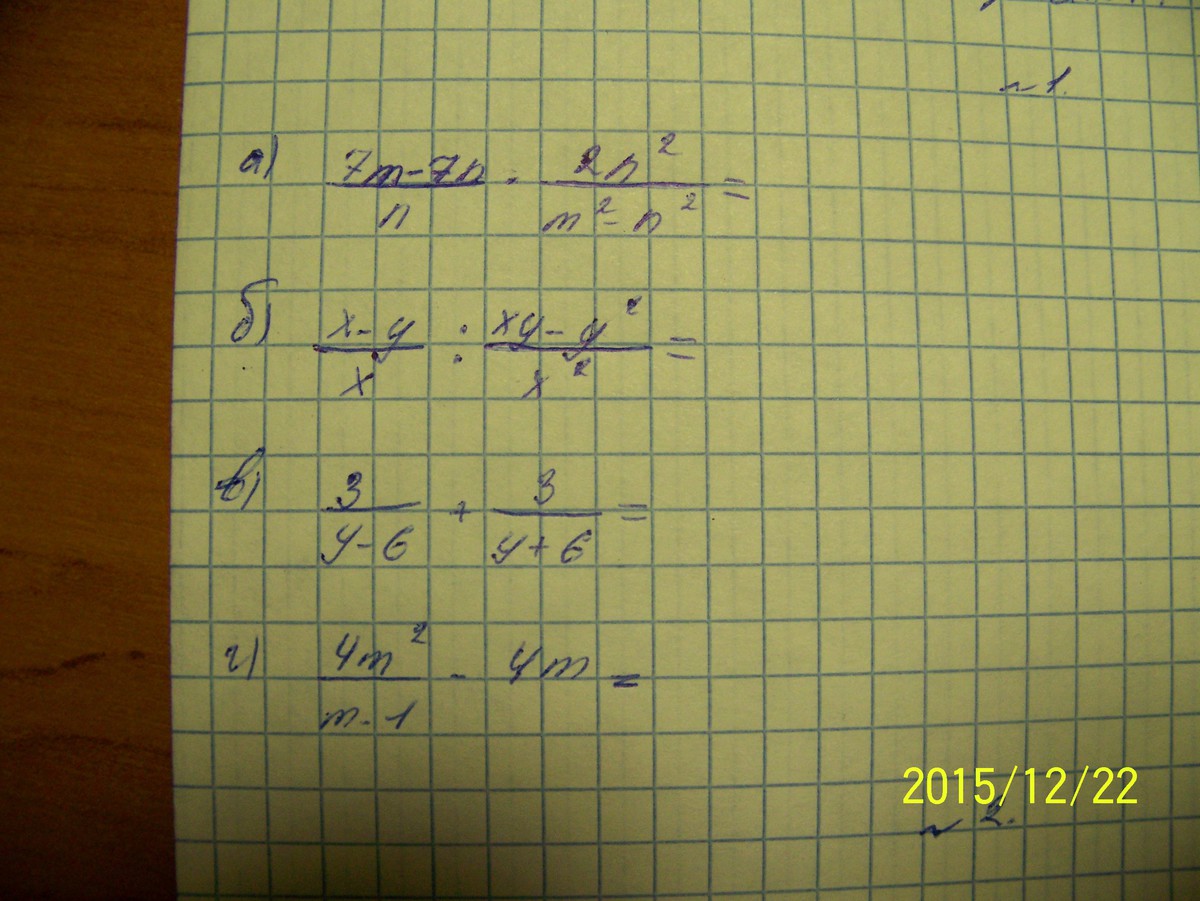 ~ 1.
а) (7m-7n)/n · 2n²/(m²-n²) =
б) (x-y)/x : (xy-y²)/x² =
в) 3/(y-6) + 3/(y+6) =
г) 4m²/(m-1) - 4m =
2015/12/22
~ 2.